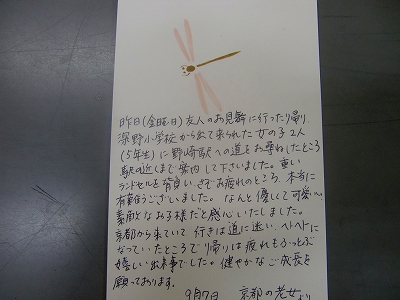 昨日(金曜日)友人のお見舞に行った帰り
深野小学校から出て来られた女の子2人
(5年生)に野崎駅への道をお尋ねしたところ
駅の近くまで案内して下さいました。重い
ランドセルを背負い さぞお疲れのところ、本当に
有難うございました。なんと優しくて可愛い
素敵なお子様だと感心いたしました。
京都から来ていて 行きは道に迷い、ヘトヘトに
なっていたところで帰りは疲れもふっとぶ
嬉しい出来事でした。健やかなご成長を
願っております。
9月7日 京都の老女より